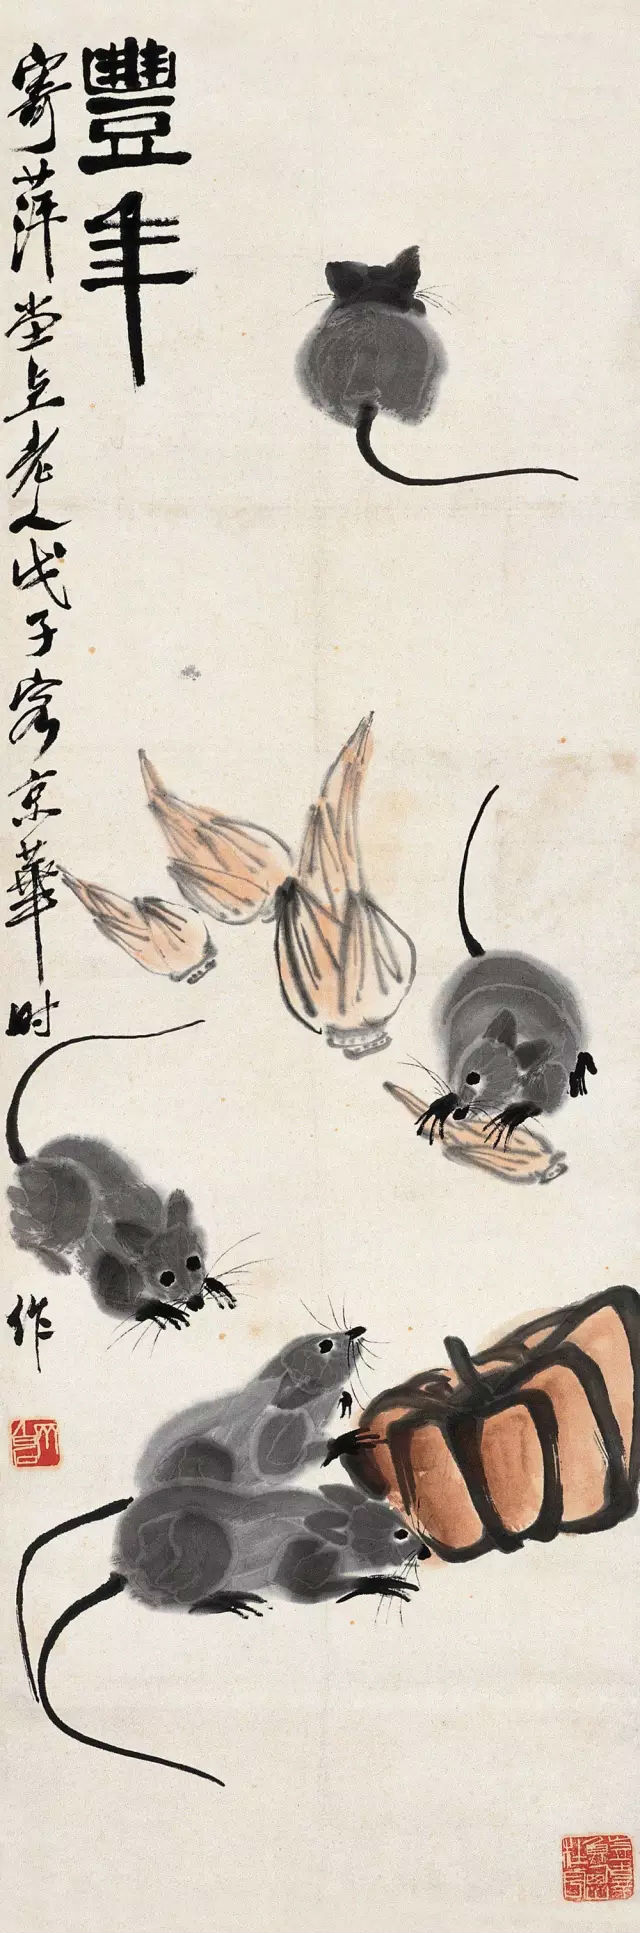 豐年
寄萍堂上老人戊子客京華时
作